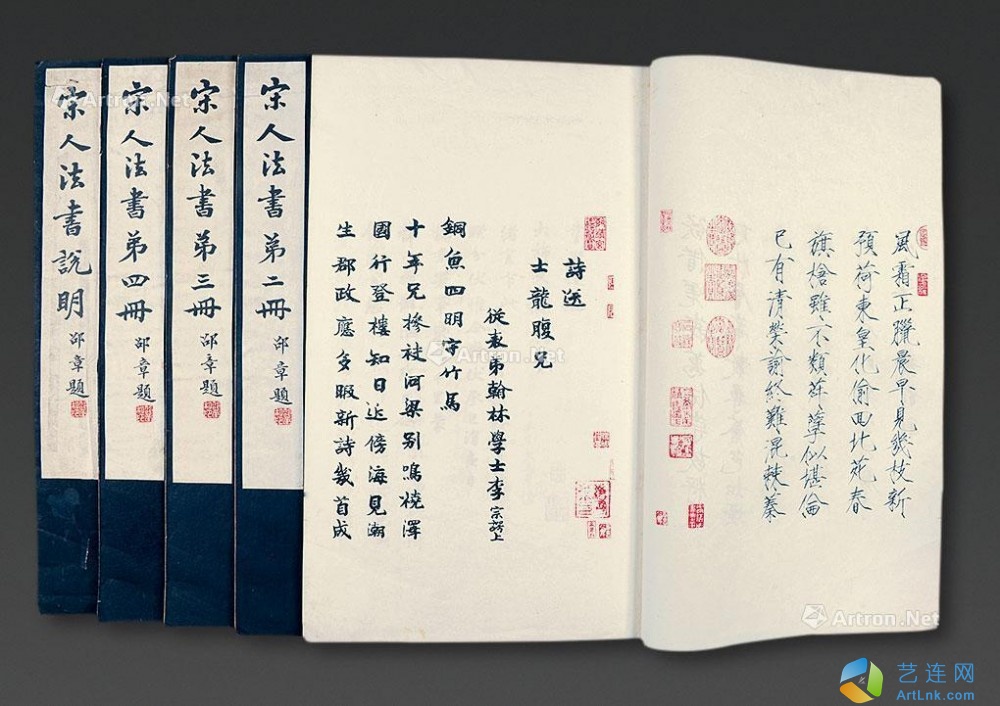 風霜正臘晨早見幾枝新
預荷東皇化偷回北苑春
旗槍雖不類荈孽似堪倫
已有清榮諭終難混棘蓁
詩送
士龍腹兄
從表弟翰林學士李宗諤上
銅魚四明守竹馬
十年兄摻袪河梁別鳴橈澤
國行登樓知日近傍海見潮
生郡政應多暇新詩幾首成
宋人法書第二冊 邵章題
宋人法書第三冊 邵章題
宋人法書第四冊 邵章題
宋人法書說明 邵章題
Artron.Net
Artron.Net
Artron.Net
Artron.Net
艺连网
ArtLnk.com